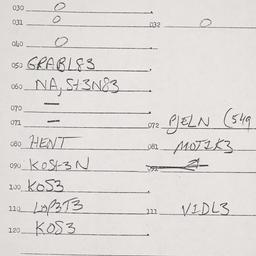 030 O
031 O 032 O
040 O
050 GRABLS3
060 NA, St3N83
070 —
071 — 072 PJELN (549
080 HENT 081 MOTIK3
090 KOSt3N
100 KOS3
110 LAP3T3 111 VIDL3
120 KOS3